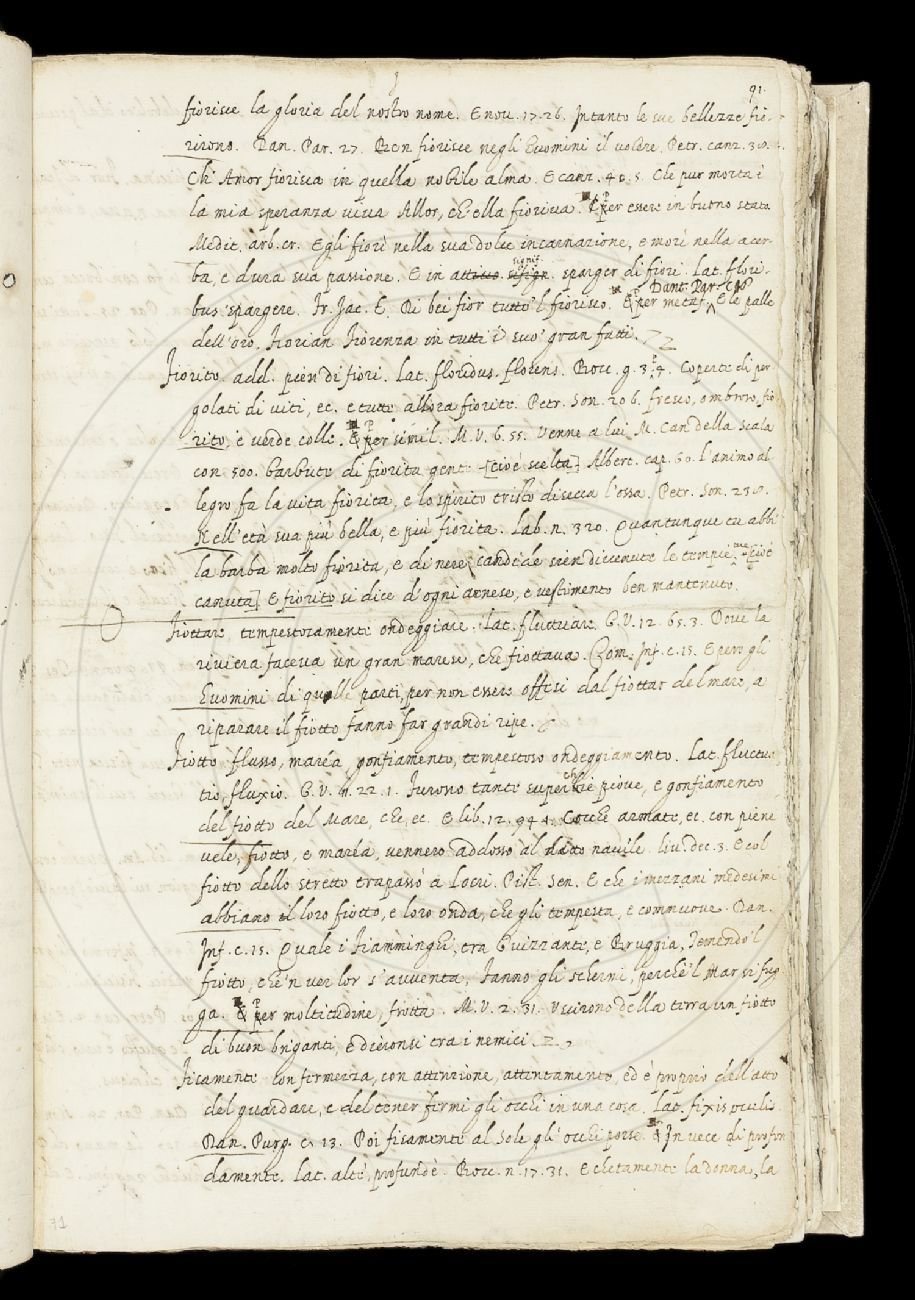 91.
fiorisce la gloria del nostro nome. E nov. 17. 26. Intanto le sue bellezze fio-
rirono. Dan. Par. 27. Ben fiorisce negli Huomini il volere, Petr. canz. 39.
Ch' Amor fiorisca in quella nobile alma. E canz. 40. 5. Che pur morta è
la mia speranza viva Allor, ch' ella fioriva. per essere in buono stato
Medit. arb. cr. Egli fiorì nella sua dolce incarnazione, e morì nella acer-
ba, e dura sua passione. E in attivo signif. sparger di fiori. Lat. flori-
bus spargere. Fr. Jac. T. Di bei fior tutto 'l fiorivo. per metaf. Dant. Par. E le palle
dell' oro. Fiorian Fiorenza in tutti i suo' gran fatti.
Fiorito add. pien di fiori. Lat. floridus. florens. Bocc. g. 3. 4. Coperte di per-
golati di viti, ec. e tutte allora fiorite. Petr. Son. 206. fresco, ombroso, fio-
rito, e verde colle. per simil. M. V. 6. 55. Venne a lui M. Can della Scala
con 500. barbute di fiorita gente [cioè scelta] Albert. cap. 50. l'animo al-
legro fa la vita fiorita, e lo spirito tristo disecca l'ossa. Petr. Son. 239.
Nell' età sua più bella, e più fiorita. Lab. n. 320. Quantunque tu abbi
la barba molto fiorita, e di nere candide sien divenute le tempie [cioè
canuta] E fiorito si dice d'ogni arnese, e vestimento ben mantenuto
Fiottare tempestosamente ondeggiare. Lat. fluctuare. G. V. 12. 65. 3. Dove la
riviera faceva un gran marese, che fiottava. Com. Inf. c. 15. E però gli
Huomini di quelle parti, per non essere offesi dal fiottar del mare, a
riparare il fiotto fanno far grandi ripe.
Fiotto flusso, maréa, gonfiamento, tempestoso ondeggiamento. Lat. fluctua-
tio, fluxio. G. V. 11. 22. 1. Furono tante superchie piove, e gonfiamento
del fiotto del Mare, che, ec. E lib. 12. 94. 4. Cocche armate, ec. con piene
vele, fiotto, e maréa, vennero addosso al detto navile. liv. dec. 3. E col
fiotto dello stretto trapassò a Locri. Pist. Sen. E che i mezzani medesimi
abbiano il loro fiotto, e loro onda, che gli tempesta, e commuove. Dan.
Inf. c. 15. Quale i Fiamminghi, tra Guizzante, e Bruggia, Temendo 'l
fiotto, che 'n ver lor s'avventa, Fanno gli schermi, perchè 'l Mar si fug-
ga. per moltitudine, frotta. M. V. 2. 31. Uscirono della terra un fiotto
di buon briganti, e dieronsi tra i nemici.
Fisamente con fermezza, con attenzione, attentamente, ed è proprio dell'atto
del guardare, e del tener fermi gli occhi in una cosa. Lat. fixis oculis
Dan. Purg. c. 13. Poi fisamente al Sole gli occhi porse. In vece di profon-
damente. Lat. altè, profundè. Bocc. n. 17. 31. E chetamente la donna, la
71